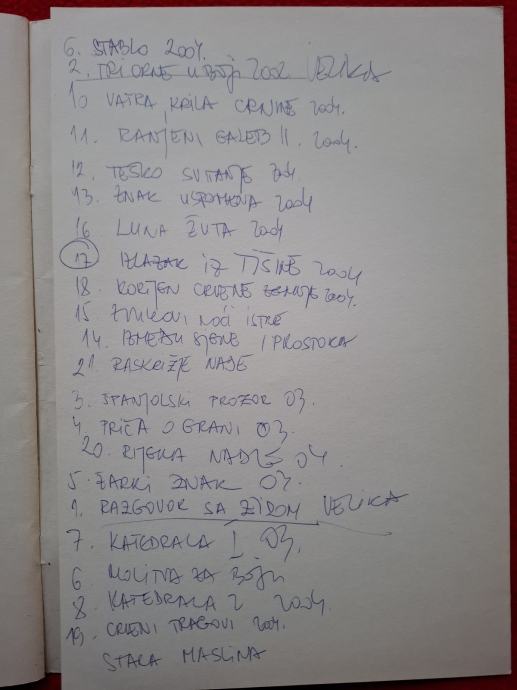 6. STABLO 2004.
2. TRI CRNE U BOJI 2002 VELIKA
10 VATRA KRILA CRNINE 2004.
11. RANJENI GALEB II. 2004.
12. TEŠKO SVITANJE 2004.
13. ZNAK USPOMENA 2004
16 LUNA ŽUTA 2004
17 IZLAZAK IZ TIŠINE 2004
18. KORIJEN CRVENE ZEMLJE 2004.
15 ZVUKOVI NOĆI ISTRE
14. IZMEĐU SJENE I PROSTORA
21. RASKRIŽJE NADE
3. ŠPANJOLSKI PROZOR 03.
4. PRIČA O GRANI 03.
20. RIJEKA NADE 04.
5. ŽARKI ZNAK 04.
1. RAZGOVOR SA ZIDOM VELIKA
7. KATEDRALA I 03.
6 MOLITVA ZA BOJU
8 KATEDRALA 2 2004.
19. CRVENI TRAGOVI 2004.
STARA MASLINA